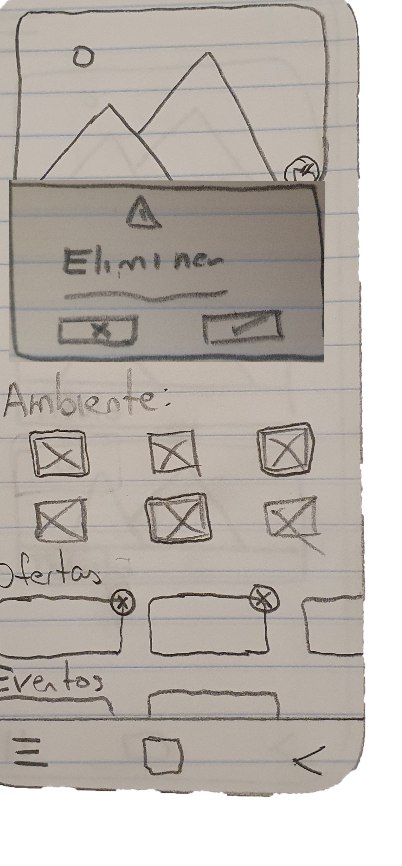 Eliminar
Ambiente:
Ofertas
Eventos